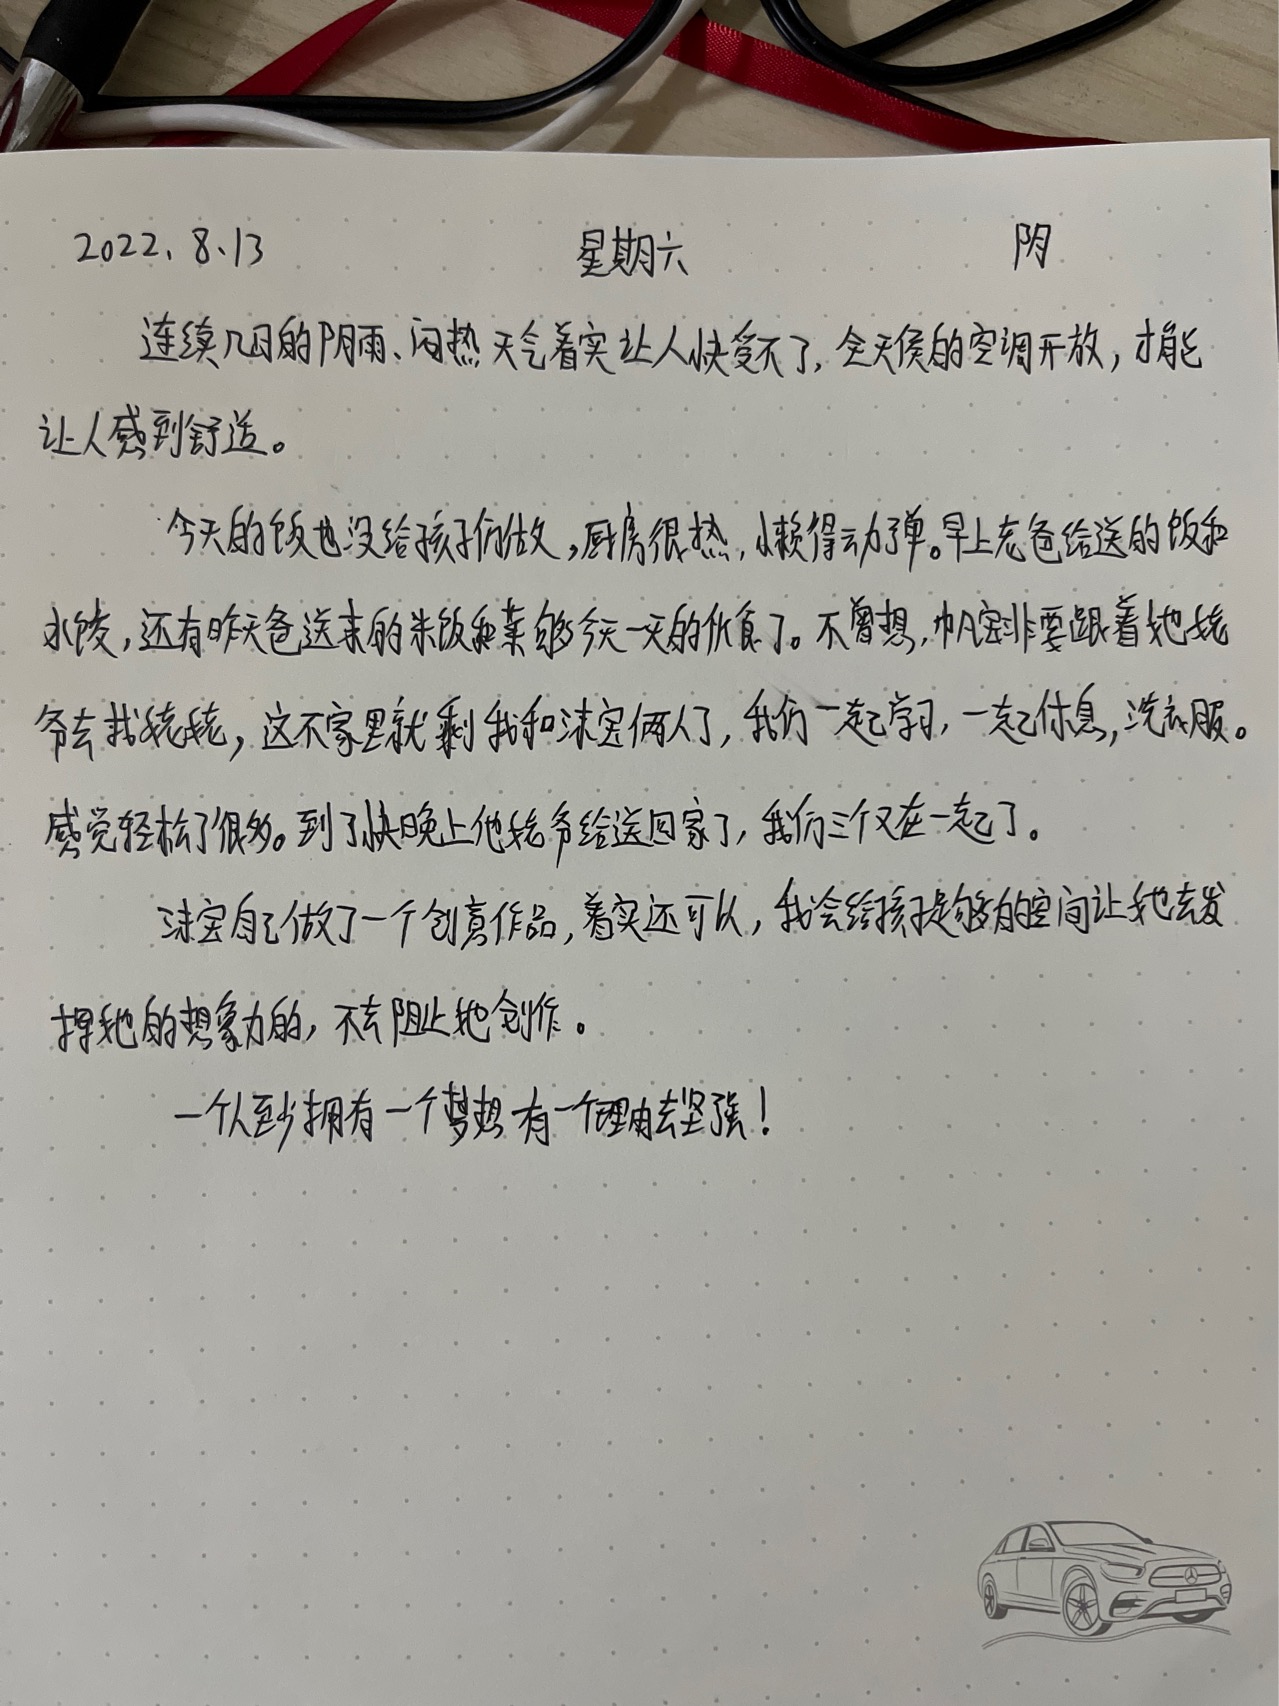 2022.8.13 星期六 阴
连续几日的阴雨、闷热天气着实让人快受不了,全天侯的空调开放,才能
让人感到舒适。
今天的饭也没给孩子们做,厨房很热,懒得动弹。早上老爸给送的饭和
水饺,还有昨天爸送来的米饭和菜够今天一天的伙食了。不曾想,帆宝非要跟着她姥
爷去找姥姥,这不家里就剩我和沫宝俩人了,我们一起学习,一起休息,洗衣服。
感觉轻松了很多。到了快晚上他姥爷给送回家了,我们三个又在一起了。
沫宝自己做了一个创意作品,着实还可以,我会给孩子足够的空间让她去发
挥她的想象力的,不去阻止她创作。
一个人至少拥有一个梦想有一个理由去坚强!